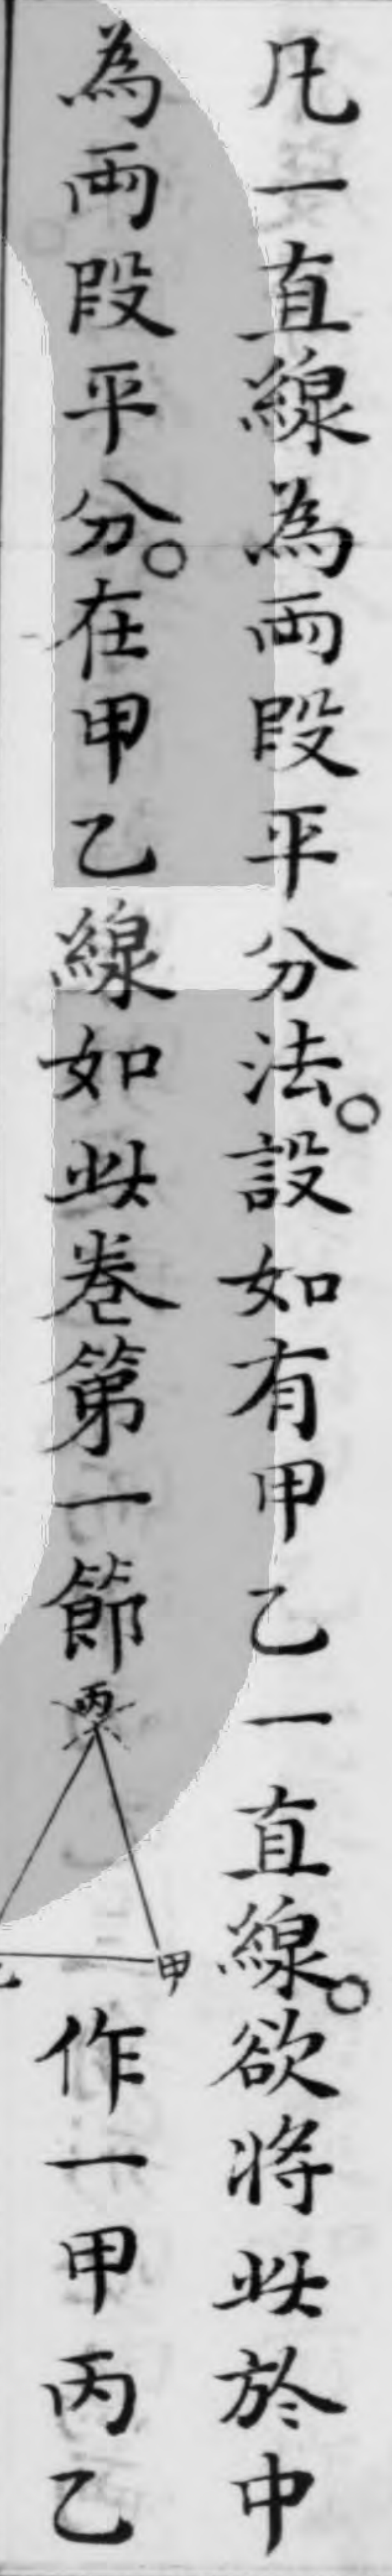 凡一直線為兩段平分法。設如有甲乙一直線。欲將此於中
為兩段平分。在甲乙線如此卷第一節
丙
甲
作一甲丙乙